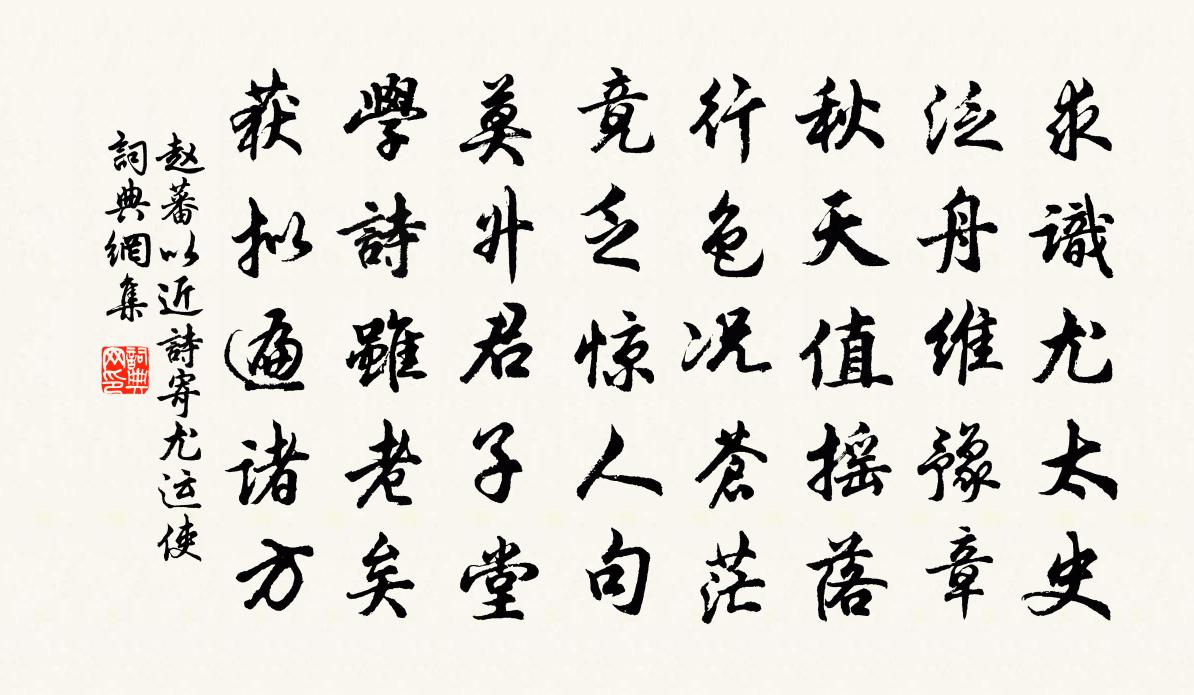 求識尤太史
泛舟維豫章
秋天值摇落
行色况蒼茫
竟乏惊人句
莫升君子堂
學詩雖老矣
获拟遍諸方
赵蕃以近詩寄尤运使
詞典網集
詞典网印